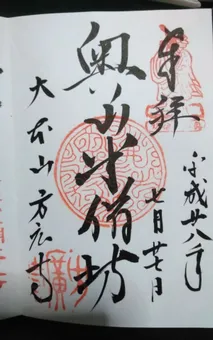 平成廿八年
七月廿七日
奉拝
奥山半僧坊
大本山方広寺